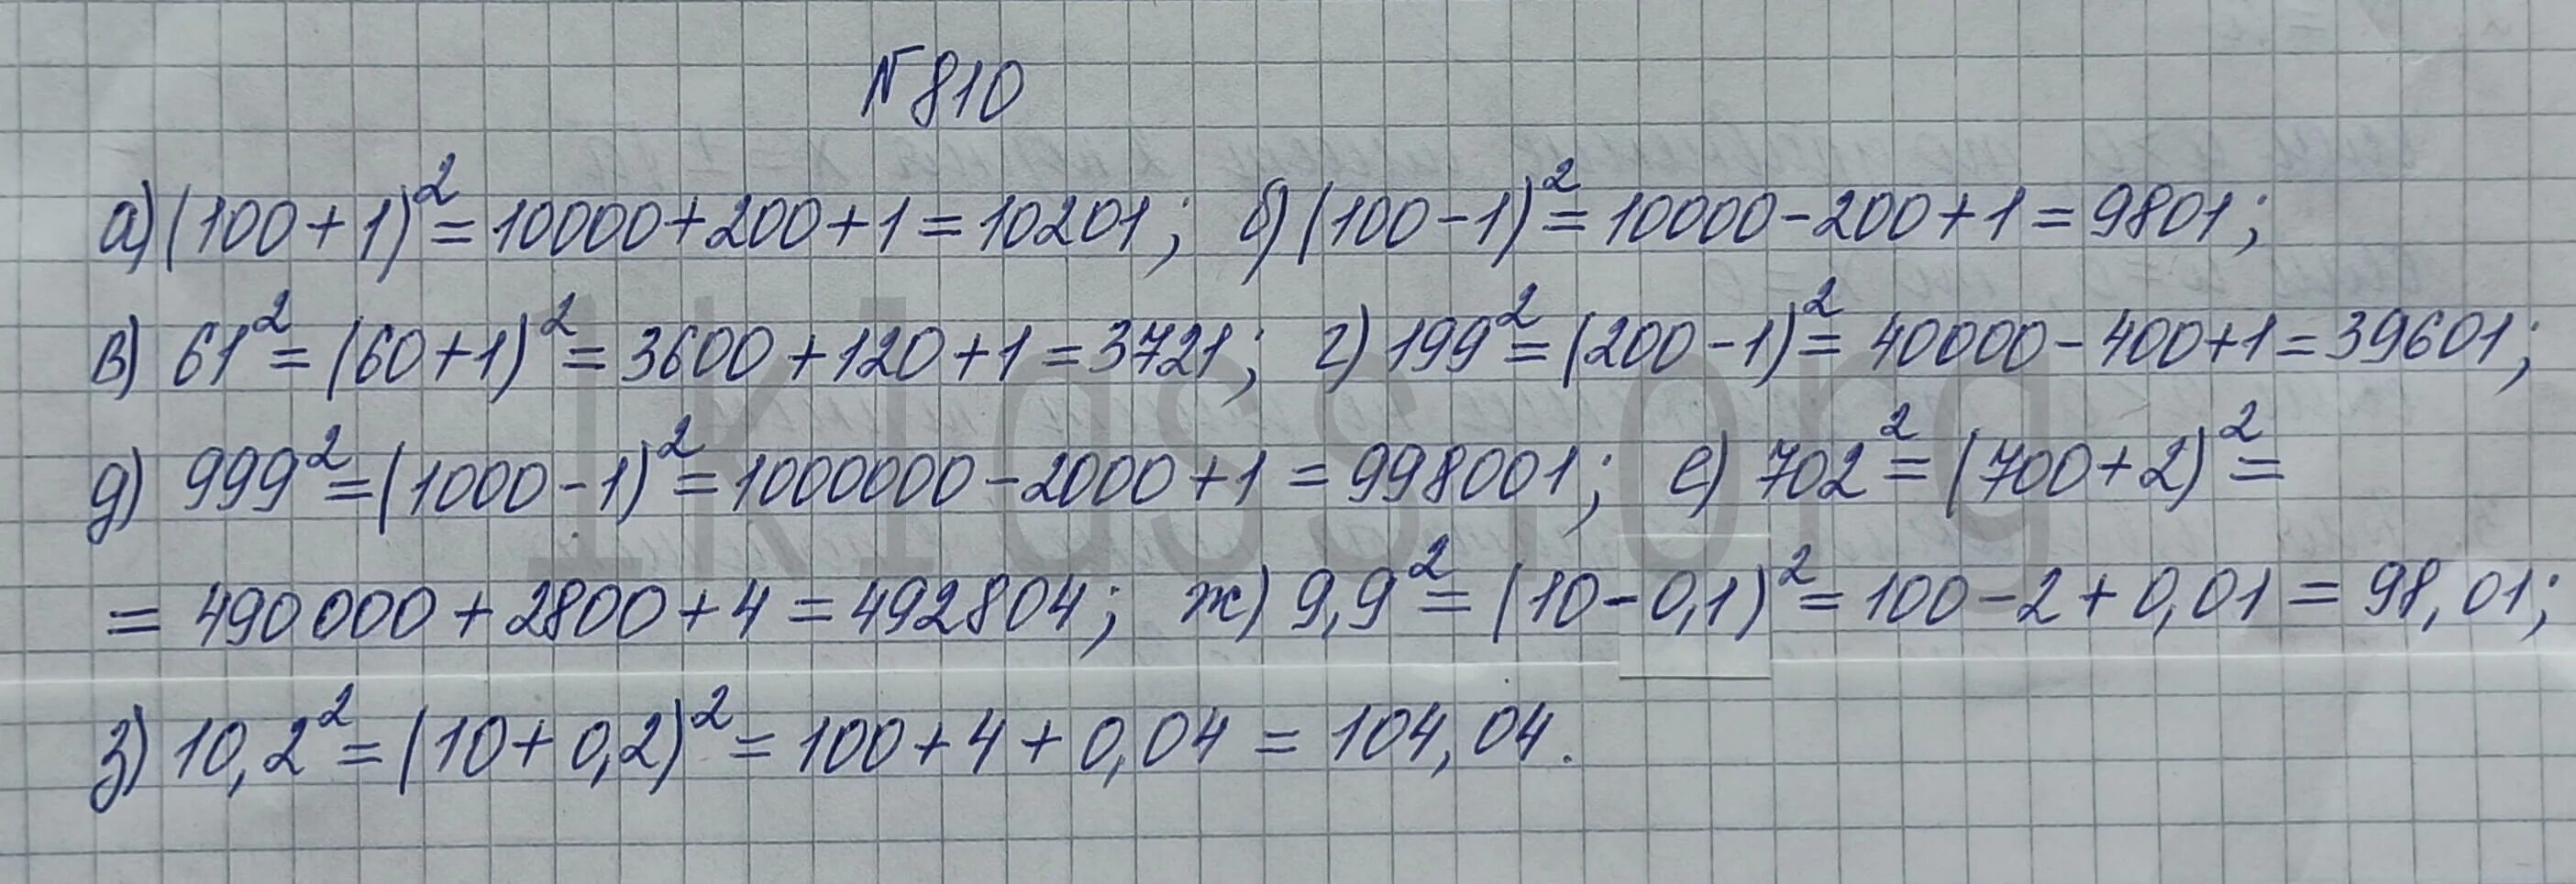 №810
а) (100+1)² = 10000+200+1 = 10201; б) (100-1)² = 10000-200+1 = 9801;
в) 61² = (60+1)² = 3600+120+1 = 3721; г) 199² = (200-1)² = 40000-400+1 = 39601;
д) 999² = (1000-1)² = 1000000-2000+1 = 998001; е) 702² = (700+2)² =
= 490000+2800+4 = 492804; ж) 9,9² = (10-0,1)² = 100-2+0,01 = 98,01;
з) 10,2² = (10+0,2)² = 100+4+0,04 = 104,04.
1klass.org